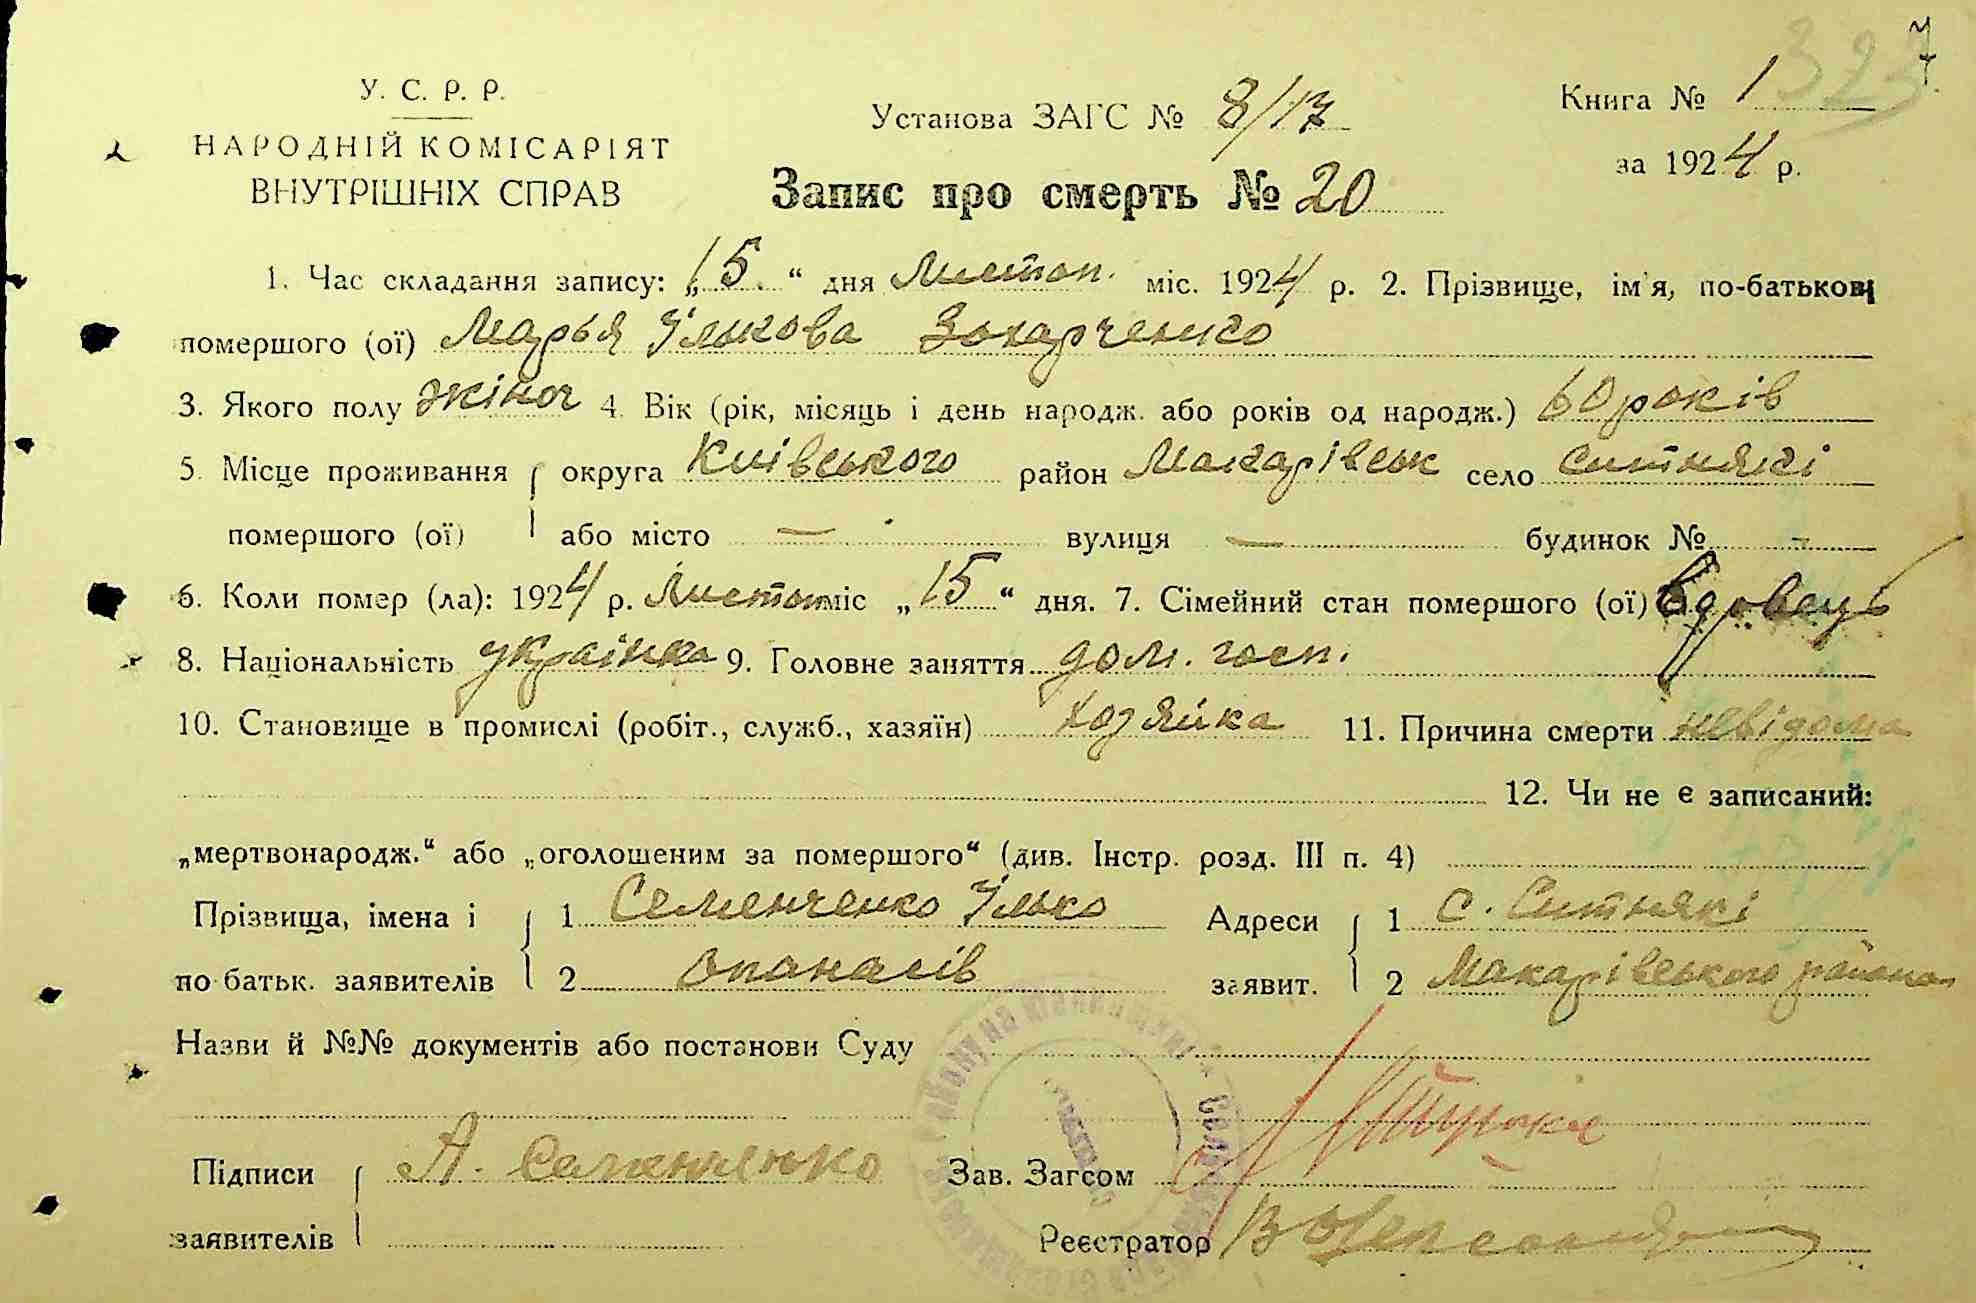 7
323
У. С. Р. Р.
НАРОДНІЙ КОМІСАРІЯТ
ВНУТРІШНІХ СПРАВ
Установа ЗАГС № 8/17
Книга № 1
за 1924 р.
Запис про смерть № 20
1. Час складання запису: „15.“ дня Листоп. міс. 1924 р. 2. Прізвище, ім'я, по-батькові
помершого (ої) Марья Ількова Зохарченко
3. Якого полу жіноч 4. Вік (рік, місяць і день народж. або років од народж.) 60 років
5. Місце проживання округа Київського район Макарівськ село Ситнякі
помершого (ої) або місто — вулиця — будинок № -
6. Коли помер (ла): 1924 р. Листоп міс „15“ дня. 7. Сімейний стан помершого (ої) вдовець
8. Національність українка 9. Головне заняття дом. госп.
10. Становище в промислі (робіт., служб., хазяїн) хозяйка 11. Причина смерти невідома
12. Чи не є записаний:
„мертвонародж.“ або „оголошеним за помершого“ (див. Інстр. розд. III п. 4)
Прізвища, імена і 1 Семенченко Ілько Адреси 1 с. Ситнякі
по батьк. заявителів 2 Опанасів заявит. 2 Макарівського района
Назви й №№ документів або постанови Суду
Підписи А. Семенченко Зав. Загсом
заявителів Реєстратор